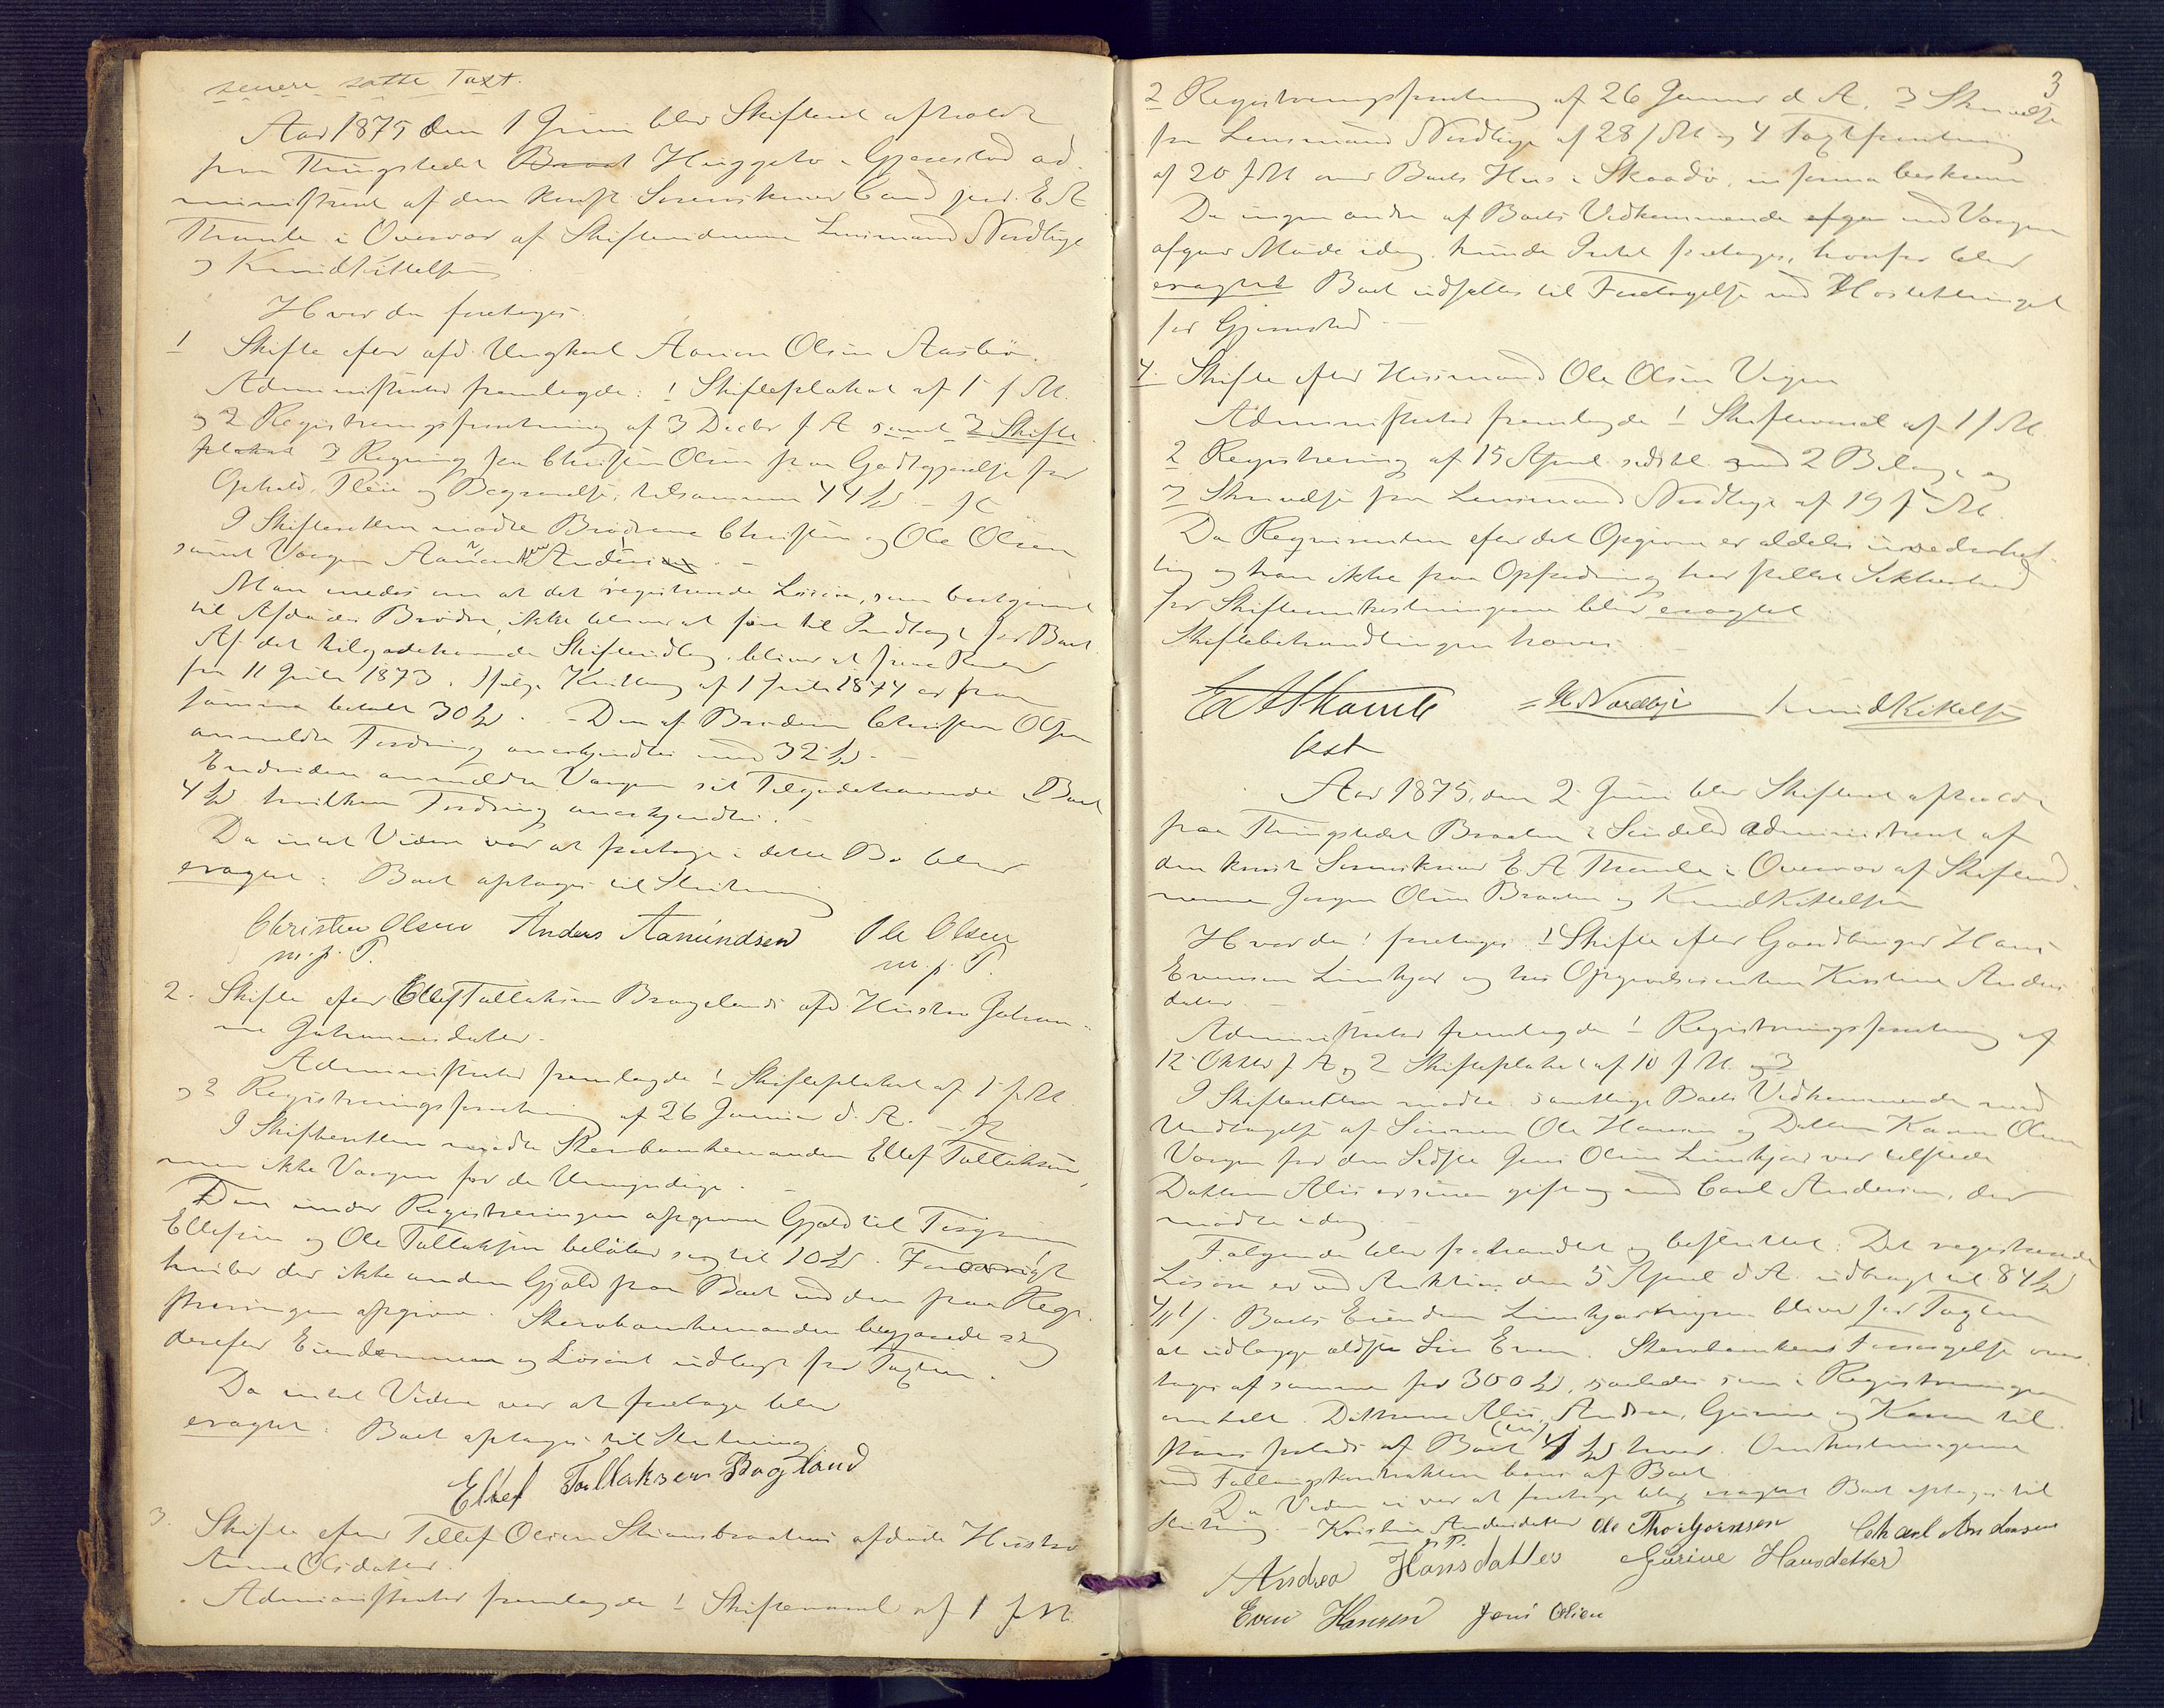 senere satte Taxt.
Aar 1875 den 1 Juni blev Skifteret afholdt
paa Thingstedet Braat Huggeto i Gjerrestad ad-
ministreret af den konst. Sorenskriver Cand jur. E A
Thomle i Overvær af Skiftevidnerne Lensmand Nordbye
og Knud Kittelsen
Hvor da foretoges
1 Skifte efter afd. Ungkarl Aanon Olsen Aasbøe.
Administrator fremlagde: 1 Skifteplakat af 1 f. M.
og 2 Registreringsforretning af 3 Decbr f A samt 3 Skifte
plakat 3 Regning fra Christen Olsen for Godtgjørelse for
Ophold, Pleie og Begravelse, tilsammen 44 Spd.
I Skifteretten mødte Brødrene Christen og Ole Olsen
samt Værgen Anders
Man enedes om at det registrerede Løsøre, som bestemt
til Afdødes Brødre, ikke bliver at føre til Indtægt for Boet.
Af det tilgodehavende bliver at Renter
fra 11 Juli 1873. Ifølge Kvittering af 1 Juli 1874 er paa
samme betalt 30 Spd. - Den af Broderen Christen Olsen
anmeldte Fordring anerkjendtes med 32 Spd. -
Endvidere anmeldte Værgen sit Tilgodehavende i Boet
4 Spd hvilken Fordring anerkjendtes. -
Da intet Videre var at foretage i dette Bo blev
eragtet: Boet optages til Slutning
Christen Olsen Anders Aamundsen Ole Olsen
m. p. P. m. p. P.
2. Skifte efter Ellef Tallaksen Bragelands afd. Hustru Johan-
ne Johannesdatter.
Administrator fremlagde 1 Skifteplakat af 1 f. M.
og 2 Registreringsforretning af 26 Januar d. A.
I Skifteretten mødte Stervboenkemanden Ellef Tallaksen,
men ikke Værgen for de Umyndige. -
Den under Registreringen opgivne Gjæld til Terjer
Ellefsen og Ole Tallaksen beløber sig til 10 Spd. Forøvrigt
hviler der ikke anden Gjæld paa Boet end den paa Regi-
streringen opgivne. Stervboenkemanden begjærede sig
derefter Eiendommen og Løsøret udlagt for Taxten.
Da intet Videre var at foretage blev
eragtet: Boet optages til Slutning
Ellef Tallaksen Bragland
3. Skifte efter Tellef Olsen Skiorsbraatens afdøde Hustru
Anne Olsdatter.
Administrator fremlagde 1 Skiftevarsel af 1 f. M.
3
2 Registreringsforretning af 26 Januar d A. 3 Skrivelse
fra Lensmand Nordbye af 28 f M og 4 Taxtforretning
af 20 f M over Boets Hus i Skaadø, in forma beskreven
Da ingen andre af Boets Vedkommende afgav end Værgen
afgav Møde idag, kunde Intet foretages, hvorfor blev
eragtet Boet udsættes til Foretagelse ved Høstethinget
for Gjerrestad. -
4. Skifte efter Husmand Ole Olsen Vegen
Administrator fremlagde 1 Skiftevarsel af 1 f M.
2 Registrering af 15 April sidstl med 2 Bilage og
3 Skrivelse fra Lensmand Nordbye af 19 f M.
Da Reqvirenten efter det Opgivne er aldeles uvederhef-
tig og han ikke paa Opfordring har stillet Sikkerhed
for Skifteomkostningerne blev eragtet
Skiftebehandlingen hæves
E A Thomle H Nordbye Knud Kittelsen
kst
Aar 1875, den 2 Juni blev Skifteret afholdt
paa Thingstedet Braaten i Søndeled administreret af
den konst Sorenskriver E A Thomle i Overvær af Skiftevid-
nerne Jørgen Olsen Braaten og Knud Kittelsen
Hvor da foretoges 1 Skifte efter Gaardbruger Hans
Evensen Limkjær og hos Opgivelsesenken Kirstine Anders-
datter. -
Administrator fremlagde 1 Registreringsforretning af
12 Oktbr f A og 2 Skifteplakat af 10 f M. og 3
I Skifteretten mødte samtlige Boets Vedkommende med
Undtagelse af Sønnen Ole Hansen og Datteren Karen Olsen
Værgen for den Sidste Jens Olsen Limkjær var tilstede
Datteren Alis er gift med Carl Andersen, der
mødte idag. -
Følgende blev forhandlet og besluttet: Det registrerede
Løsøre er ved Auktion den 5 April d A. udbragt til 84 Spd
Boets Eiendom Limkjær bliver for Taxten
at udlægge ældste Søn Even. Stervboenkens Forsørgelse over-
tages af samme for 300 Spd, saaledes som i Registreringen
omhelt. Døttrene Alis, Andrea, Gurine og Karen til-
staaes forlods af Boet 4 Spd hver. Omkostningerne
ved Follaugskontrakten bæres af Boet
Da Videre ei var at foretage blev eragtet Boet optages til
Slutning. - Kirstine Andersdatter Ole Thorbjørnsen Charl Andersen
m. p. P.
Andrea Hansdatter Gurine Hansdatter
Even Hansen Jens Olsen